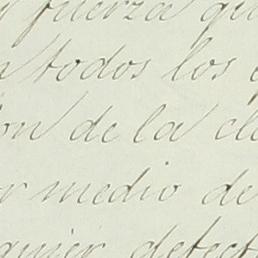 y fuerza qu
n todos los e
ón de la cla
or medio de
quier defect